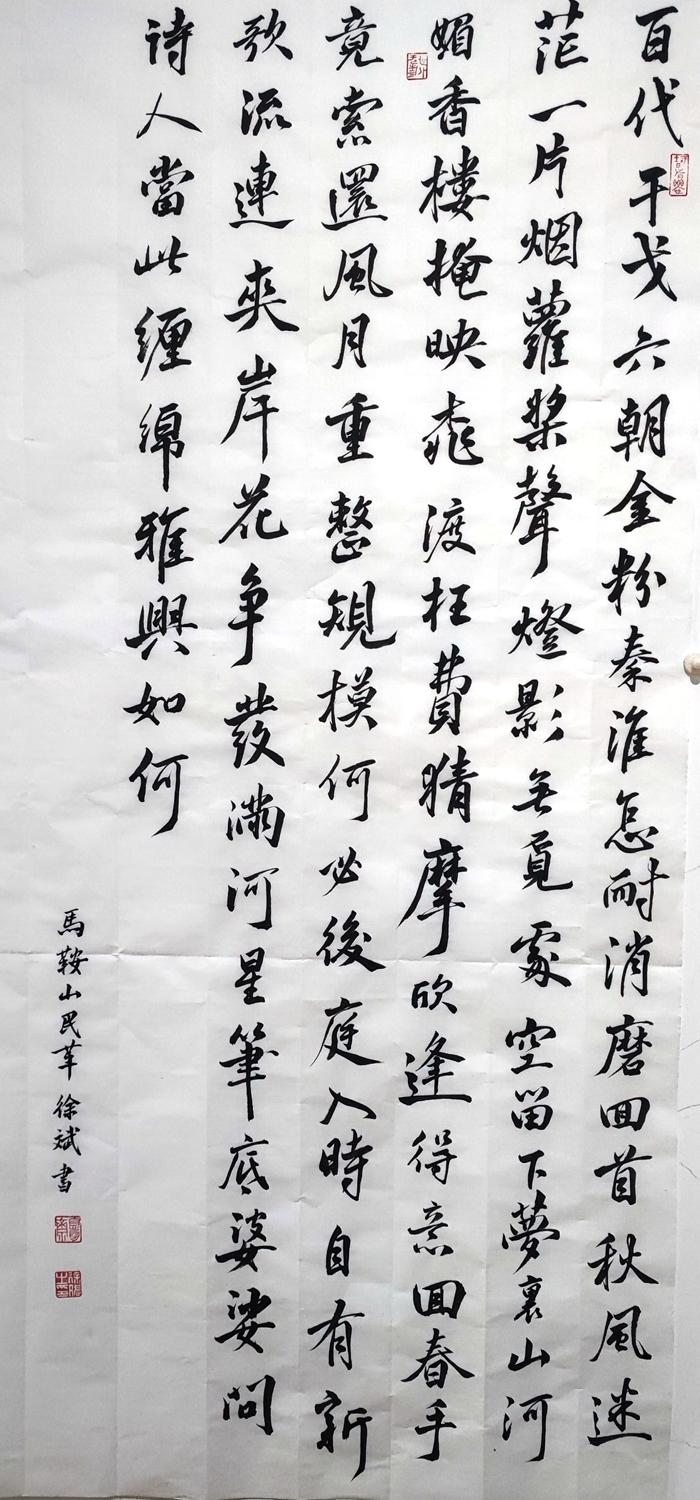 百代干戈六朝金粉秦淮怎耐消磨回首秋风迷
茫一片烟蘿槳聲燈影無覓處空留下夢裏山河
媚香樓掩映桃渡枉費晴摩欣逢得意回春手
竟索還風月重整規模何必後庭入時自有新
歌流連夾岸花爭發满河星筆底婆娑問
诗人當此缠绵雅興如何
馬鞍山民革徐斌書